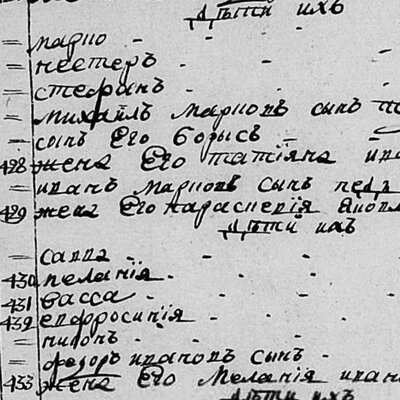 Дѣти ихъ
= марко
= нестеръ
= стефанъ
= михайлъ Марковъ сынъ
– сынъ Его борысъ
428 жена Его татіяна
= иванъ Марковъ сынъ
429 жена Его параскевія
Дѣти ихъ
= савва
430 пелагія
431 васса
432 евфросинія
= никонъ
= федоръ ивановъ сынъ
433 жена Его Меланія ивано
Дѣти ихъ